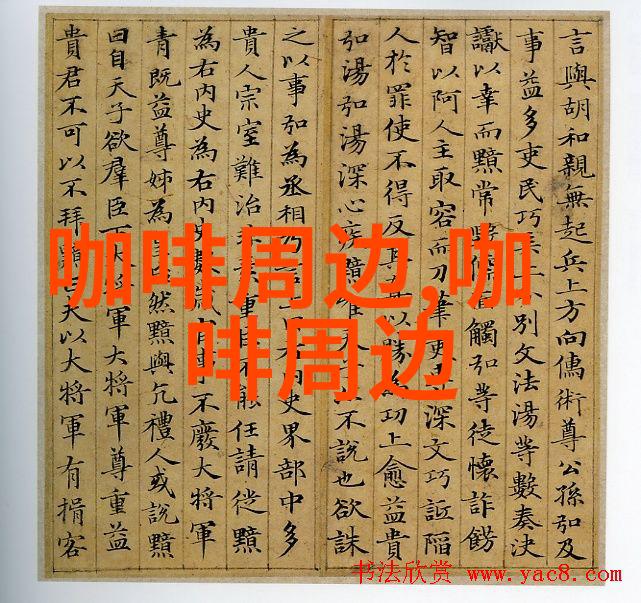 言與胡和親無起兵上方向儒術尊公孫弘及
事益多吏民巧別文法湯等數奏決
讞以幸而黯常觸弘等徒懷詐飾
智以阿人主取容而刀筆吏深文巧詆陷
人於罪使不得反以勝為功上愈益貴
弘湯弘湯深心疾黯不說也欲誅
之以事弘為丞相內史界部中多
貴人宗室難治重臣不能任請徙黯
為右內史為右內史數歲官事不廢大將軍
青既益尊姊為然黯與亢禮人或說黯
曰自天子欲羣臣下大將軍大將軍尊重益
貴君不可以不拜黯曰夫以大將軍有揖客
咖啡周边,咖
啡周边
书法欣赏 www.yac8.com